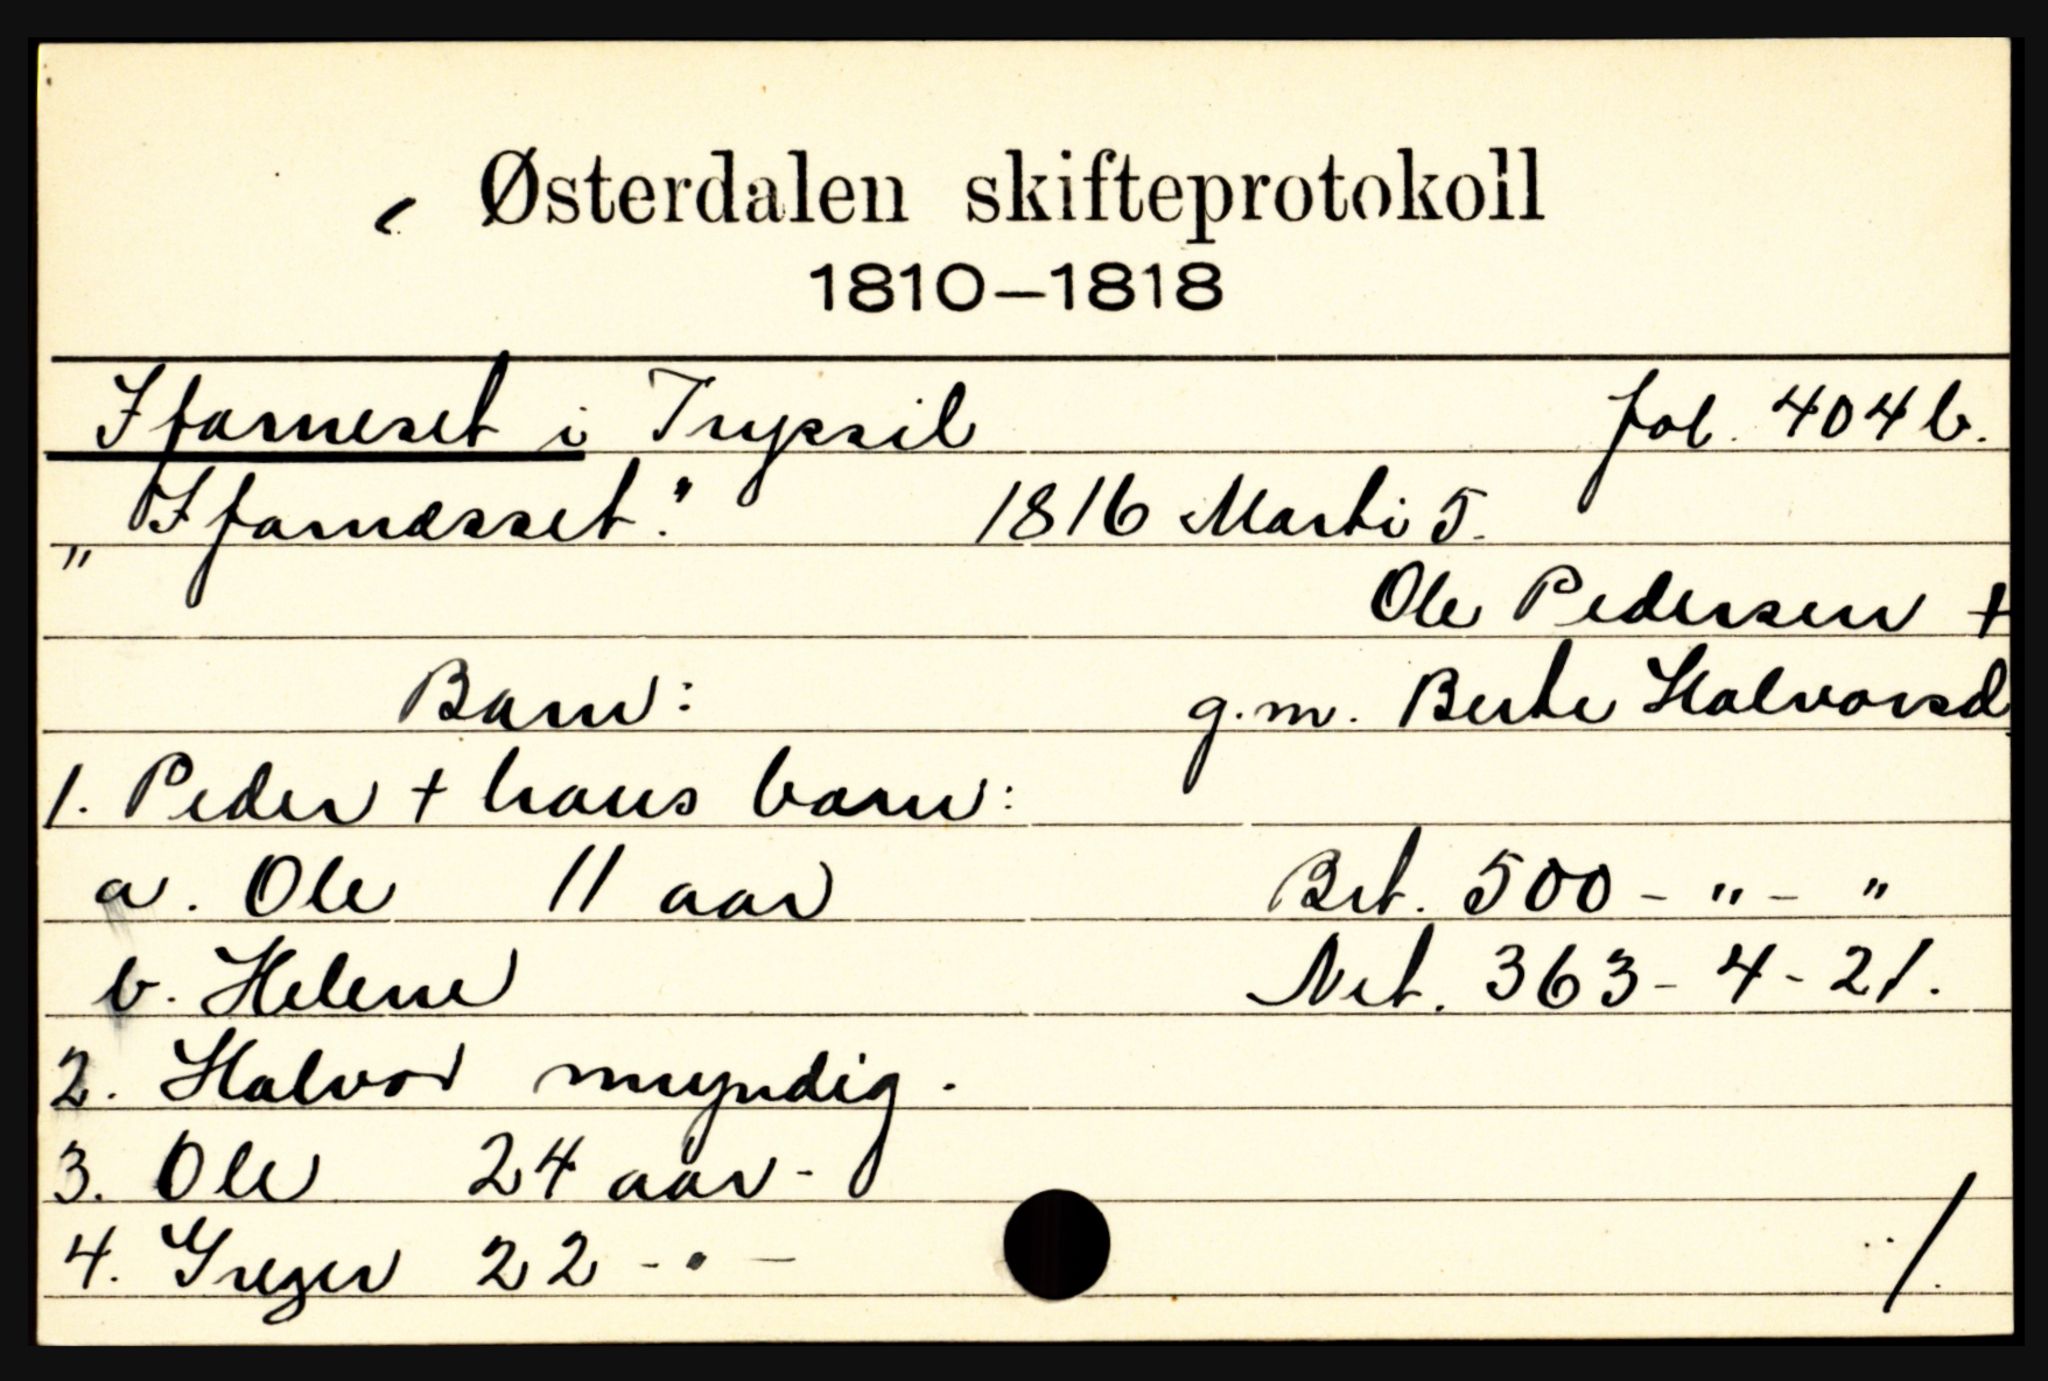 Østerdalen skifteprotokoll
1810—1818
i Trysil fol. 404 b.
1816 Marti 5.
Ole Pedersen +
Barn: g.m. Berte Halvorsd
1. Peder + hans barn:
a. Ole 11 aar Brt. 500 - " - "
b. Helene Net. 363 - 4 - 21.
2. Halvor myndig.
3. Ole 24 aar -
4. Greger 22 - " -
/.